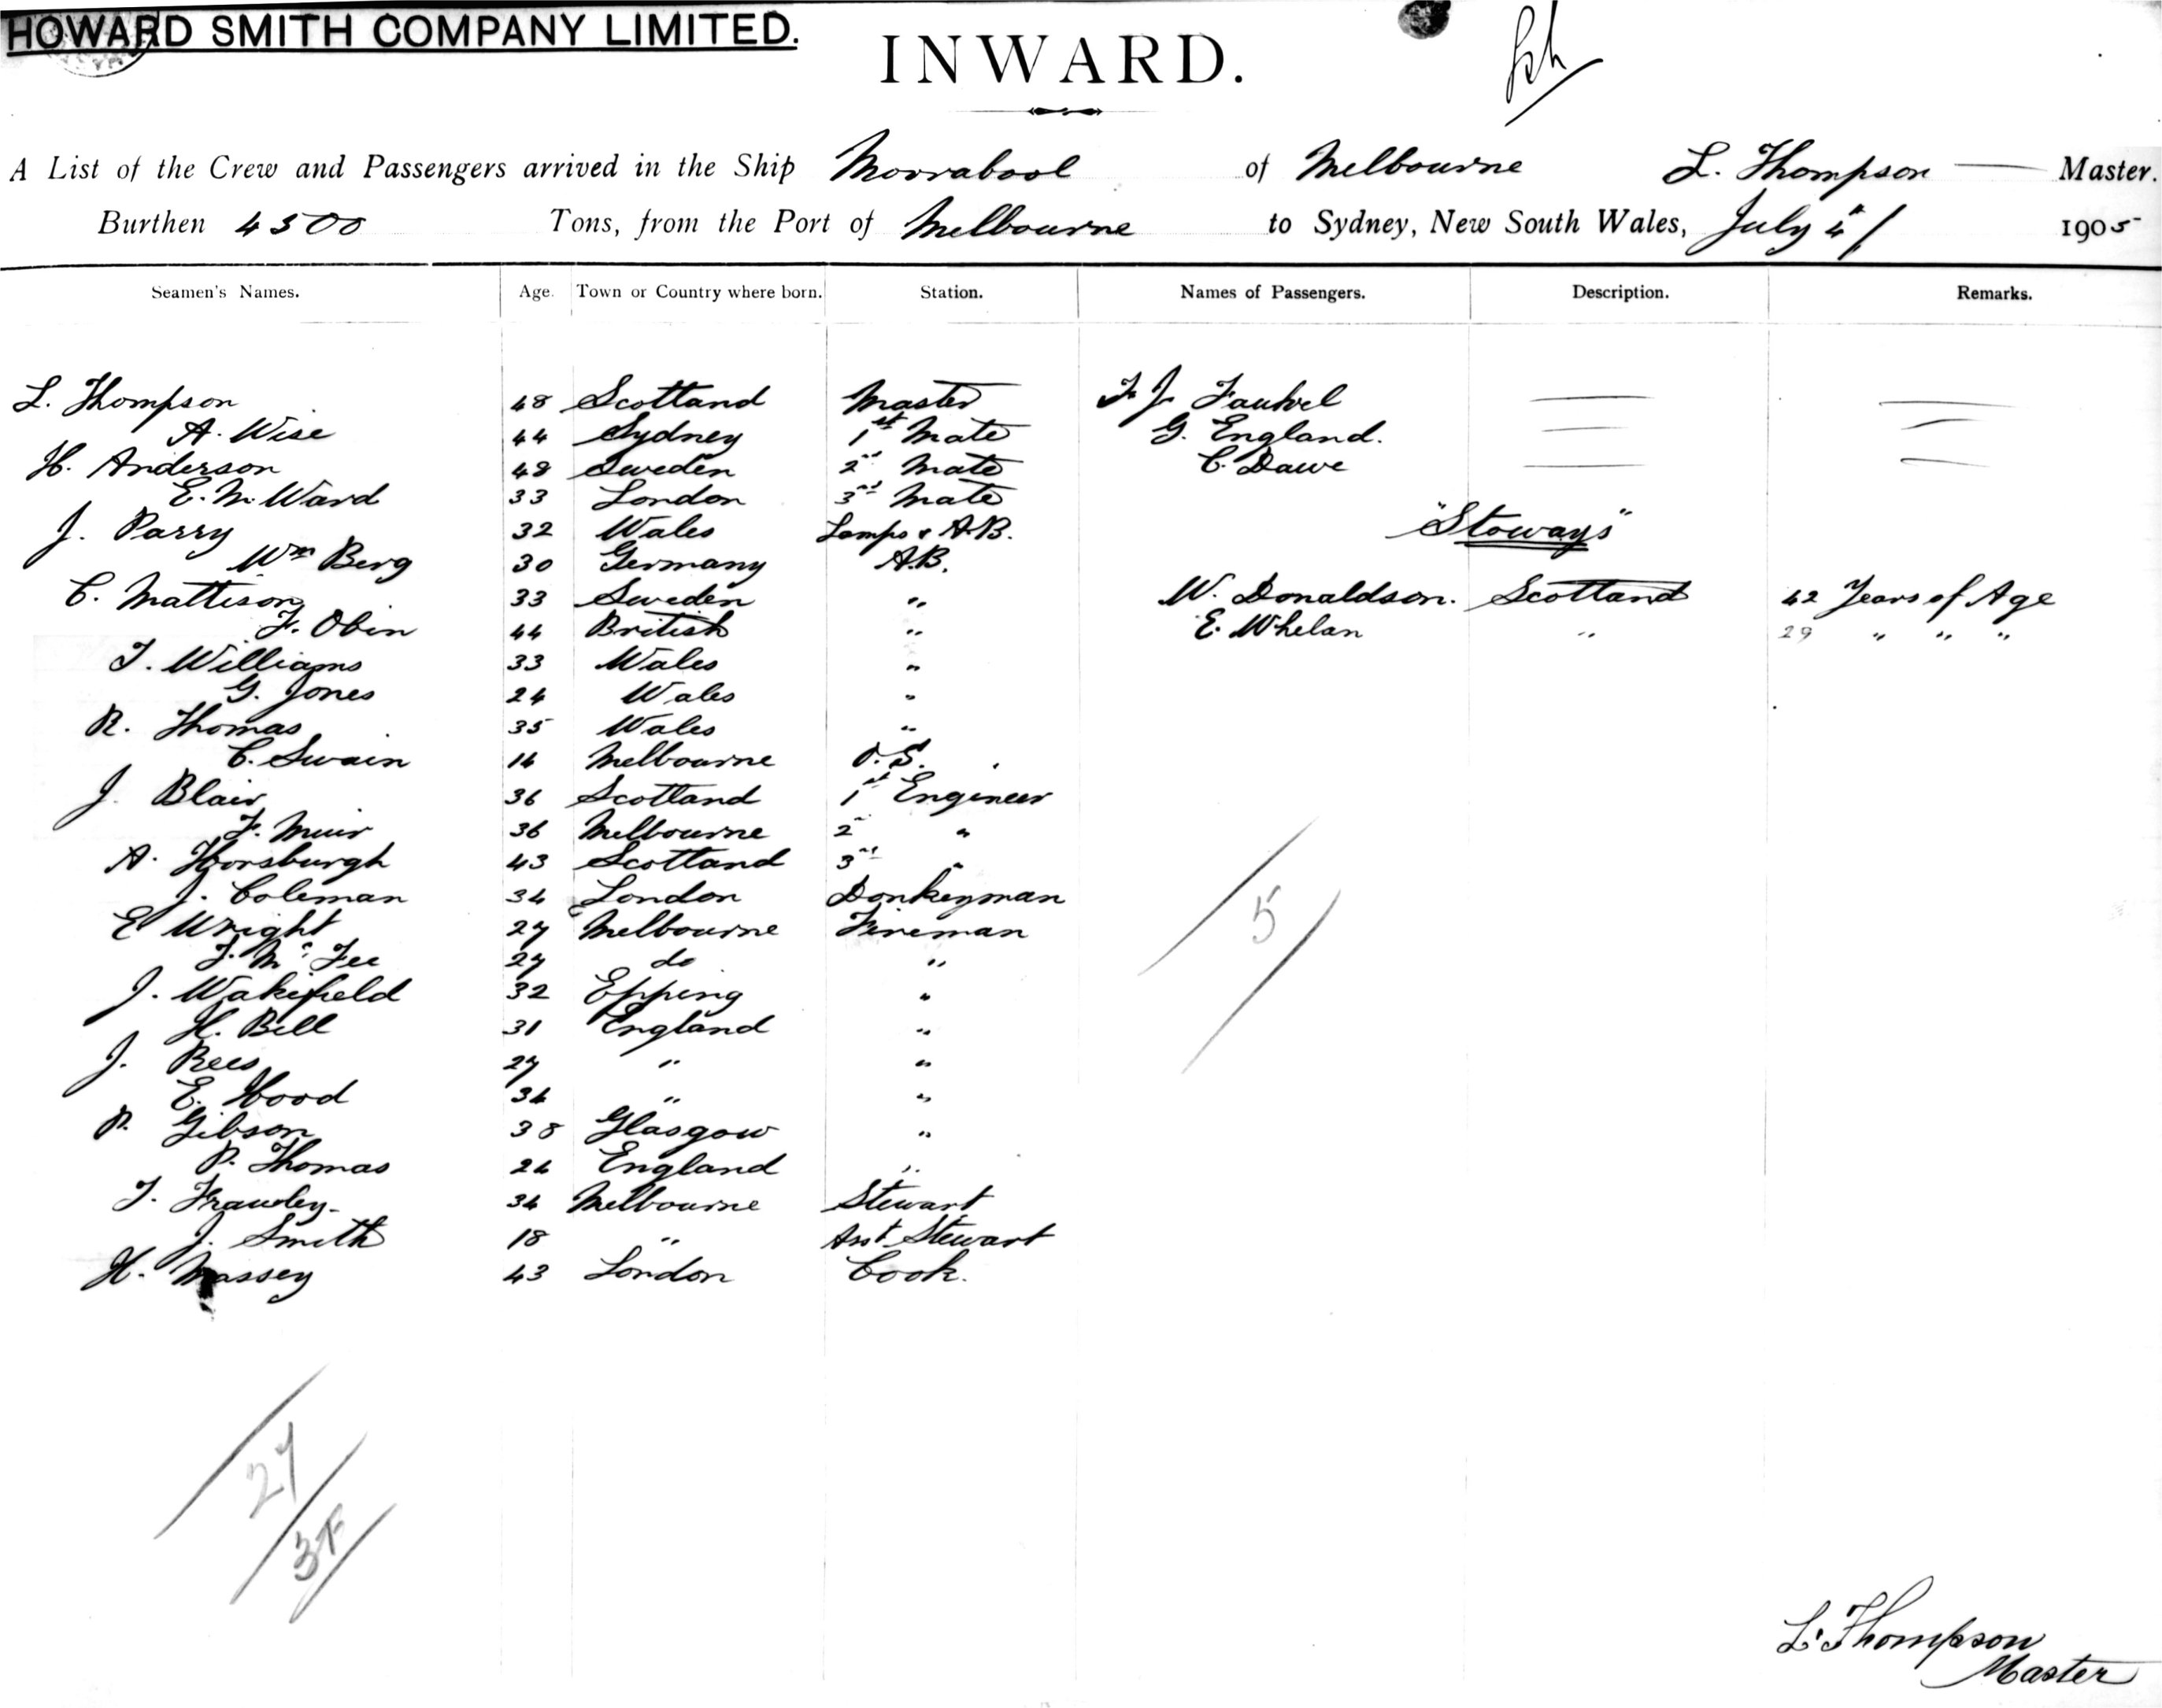 HOWARD SMITH COMPANY LIMITED.
INWARD.
A List of the Crew and Passengers arrived in the Ship Moorabool of Melbourne L. Thompson — Master.
Burthen 4500 Tons, from the Port of Melbourne to Sydney, New South Wales, July 4th 1905
Seamen's Names. Age. Town or Country where born. Station. Names of Passengers. Description. Remarks.
L. Thompson 48 Scotland Master F. J.
A. Wise 44 Sydney 1st Mate G. England.
H. Anderson 48 Sweden 2nd Mate C. Dawe
E. M. Ward 33 London 3rd Mate
J. Parry 32 Wales Lamps & A.B. "Stoways"
Wm Berg 30 Germany A.B.
C. Mattison 33 Sweden " W. Donaldson. Scotland 42 Years of Age
F. Obin 44 British " E. Whelan " 29 " " "
T. Williams 33 Wales "
G. Jones 24 Wales "
R. Thomas 35 Wales "
C. Swain 16 Melbourne O.S.
J. Blair 36 Scotland 1st Engineer
F. Muir 36 Melbourne 2nd "
A. Horsburgh 43 Scotland 3rd "
J. Coleman 34 London Donkeyman
E Wright 27 Melbourne Fireman
J. Mc Fee 27 do "
J. Wakefield 32 Epping "
H. Bell 31 England "
J. Rees 27 " "
E. Hood 34 " "
P. Gibson 38 Glasgow "
P. Thomas 24 England "
T. Frawley 34 Melbourne Stewart
J. Smith 18 " Asst Stewart
H. Massey 43 London Cook.
5
27
L. Thompson
Master